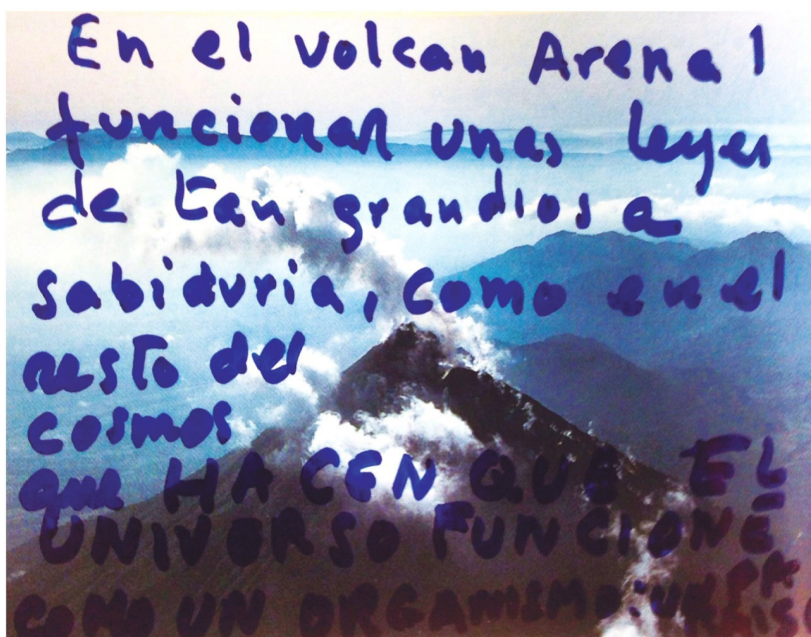 En el volcan Arenal
funcionan unas leyes
de tan grandiosa
sabiduria, como en el
resto del
cosmos
que HACEN QUE EL
UNIVERSO FUNCIONE
COMO UN ORGANISMO: UN